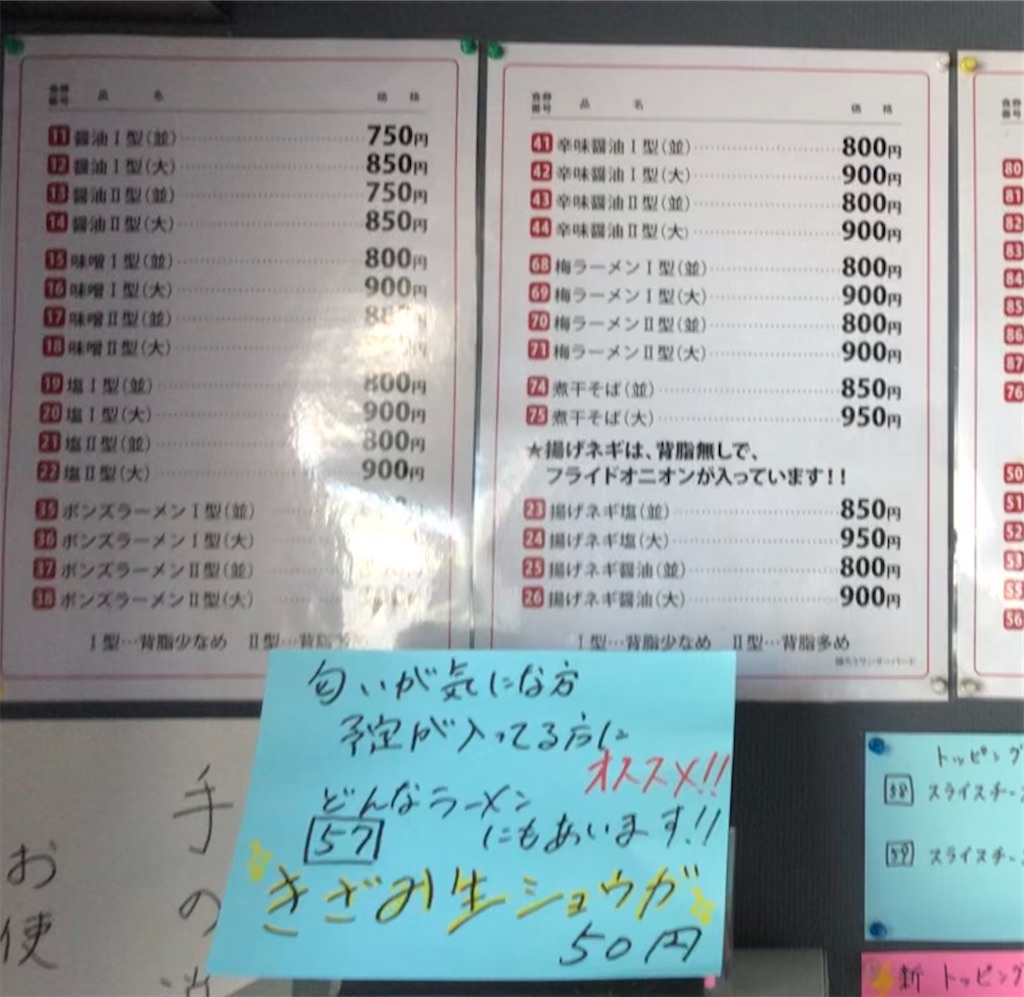 食券番号 品 名 価 格
11 醤油Ⅰ型(並) 750円
12 醤油Ⅰ型(大) 850円
13 醤油Ⅱ型(並) 750円
14 醤油Ⅱ型(大) 850円
15 味噌Ⅰ型(並) 800円
16 味噌Ⅰ型(大) 900円
17 味噌Ⅱ型(並)
18 味噌Ⅱ型(大)
19 塩Ⅰ型(並) 800円
20 塩Ⅰ型(大) 900円
21 塩Ⅱ型(並) 800円
22 塩Ⅱ型(大) 900円
35 ポンズラーメンⅠ型(並)
36 ポンズラーメンⅠ型(大)
37 ポンズラーメンⅡ型(並)
38 ポンズラーメンⅡ型(大)
Ⅰ型…背脂少なめ Ⅱ型…背脂多め
食券番号 品 名 価 格
41 辛味醤油Ⅰ型(並) 800円
42 辛味醤油Ⅰ型(大) 900円
43 辛味醤油Ⅱ型(並) 800円
44 辛味醤油Ⅱ型(大) 900円
68 梅ラーメンⅠ型(並) 800円
69 梅ラーメンⅠ型(大) 900円
70 梅ラーメンⅡ型(並) 800円
71 梅ラーメンⅡ型(大) 900円
74 煮干そば(並) 850円
75 煮干そば(大) 950円
★揚げネギは、背脂無しで、
フライドオニオンが入っています!!
23 揚げネギ塩(並) 850円
24 揚げネギ塩(大) 950円
25 揚げネギ醤油(並) 800円
26 揚げネギ醤油(大) 900円
Ⅰ型…背脂少なめ Ⅱ型…背脂多め
80
81
82
83
84
85
86
87
76
50
51
52
53
55
56
匂いが気になる方
予定が入ってる方に
オススメ!!
どんなラーメン
57 にもあいます!!
きざみ生ショウガ
50円
トッピング
58 スライスチー
59 スライスチー
新 トッピング
手の
お
使